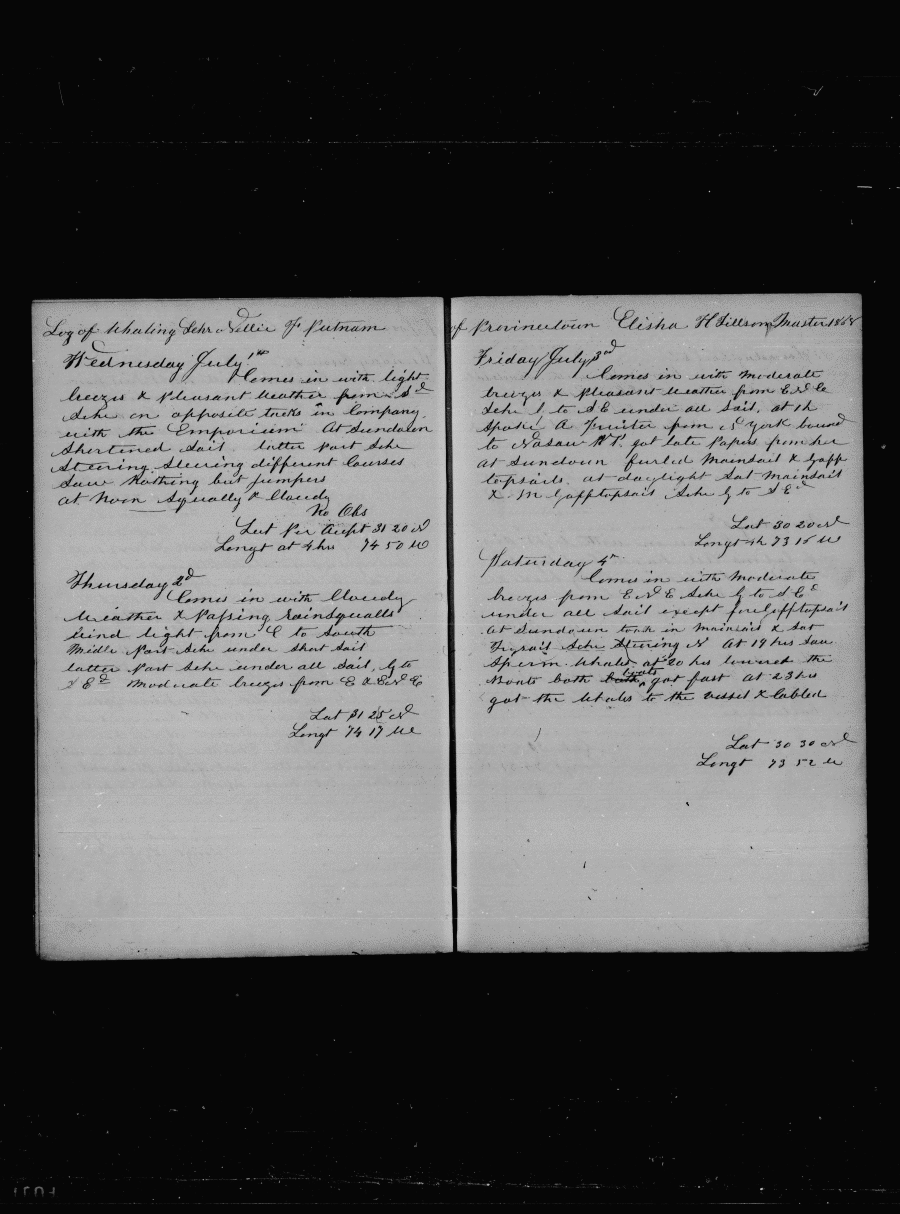 Log of Whaling Schr Nellie F Putnam
Wednesday July 1st
Comes in with light
breezes & Pleasant Weather from Sd
Schr on opposite tacks in Company
with the Emporium At Sundown
Shortened Sail latter Part Schr
Steering Steering different Courses
Saw Nothing but jumpers
at Noon Squally & Cloudy
No Obs
Lat Per Acupt 31 20 N
Longt at 4 hrs 74 50 W
Thursday 2d
Comes in with Cloudy
Weather & Passing rainsqualls
Wind light from E to South
Middle Part Schr under Short Sail
latter Part Schr under all Sail, by to
SEd Moderate breezes from E & ENE
Lat 31 25 N
Longt 74 17 W
of Provincetown Elisha H Tillson Master 1868
Friday July 3rd
Comes in with Moderate
breezes & Pleasant Weather from ENE
Schr by to SE under all Sail, at 1h
Spoke A Fruiter from N York bound
to Nasaw N.P. got late Papers from her
at Sundown furled Mainsail & Gaff
topsails. at daylight Sat Mainsail
& M Gafftopsail Schr by to SEd
Lat 30 20 N
Longt 4h 73 15 W
Saturday 4th
Comes in with Moderate
breezes from ENE Schr by to SEd
under all Sail except foregafftopsail
at Sundown took in Mainsail & Sat
Trysail Schr Steering N At 19 hrs Saw
Sperm Whales at 20 hrs lowered the
Boats both boats got fast at 23 hrs
got the Whales to the vessel & Cabled
Lat 30 30 N
Longt 73 52 W